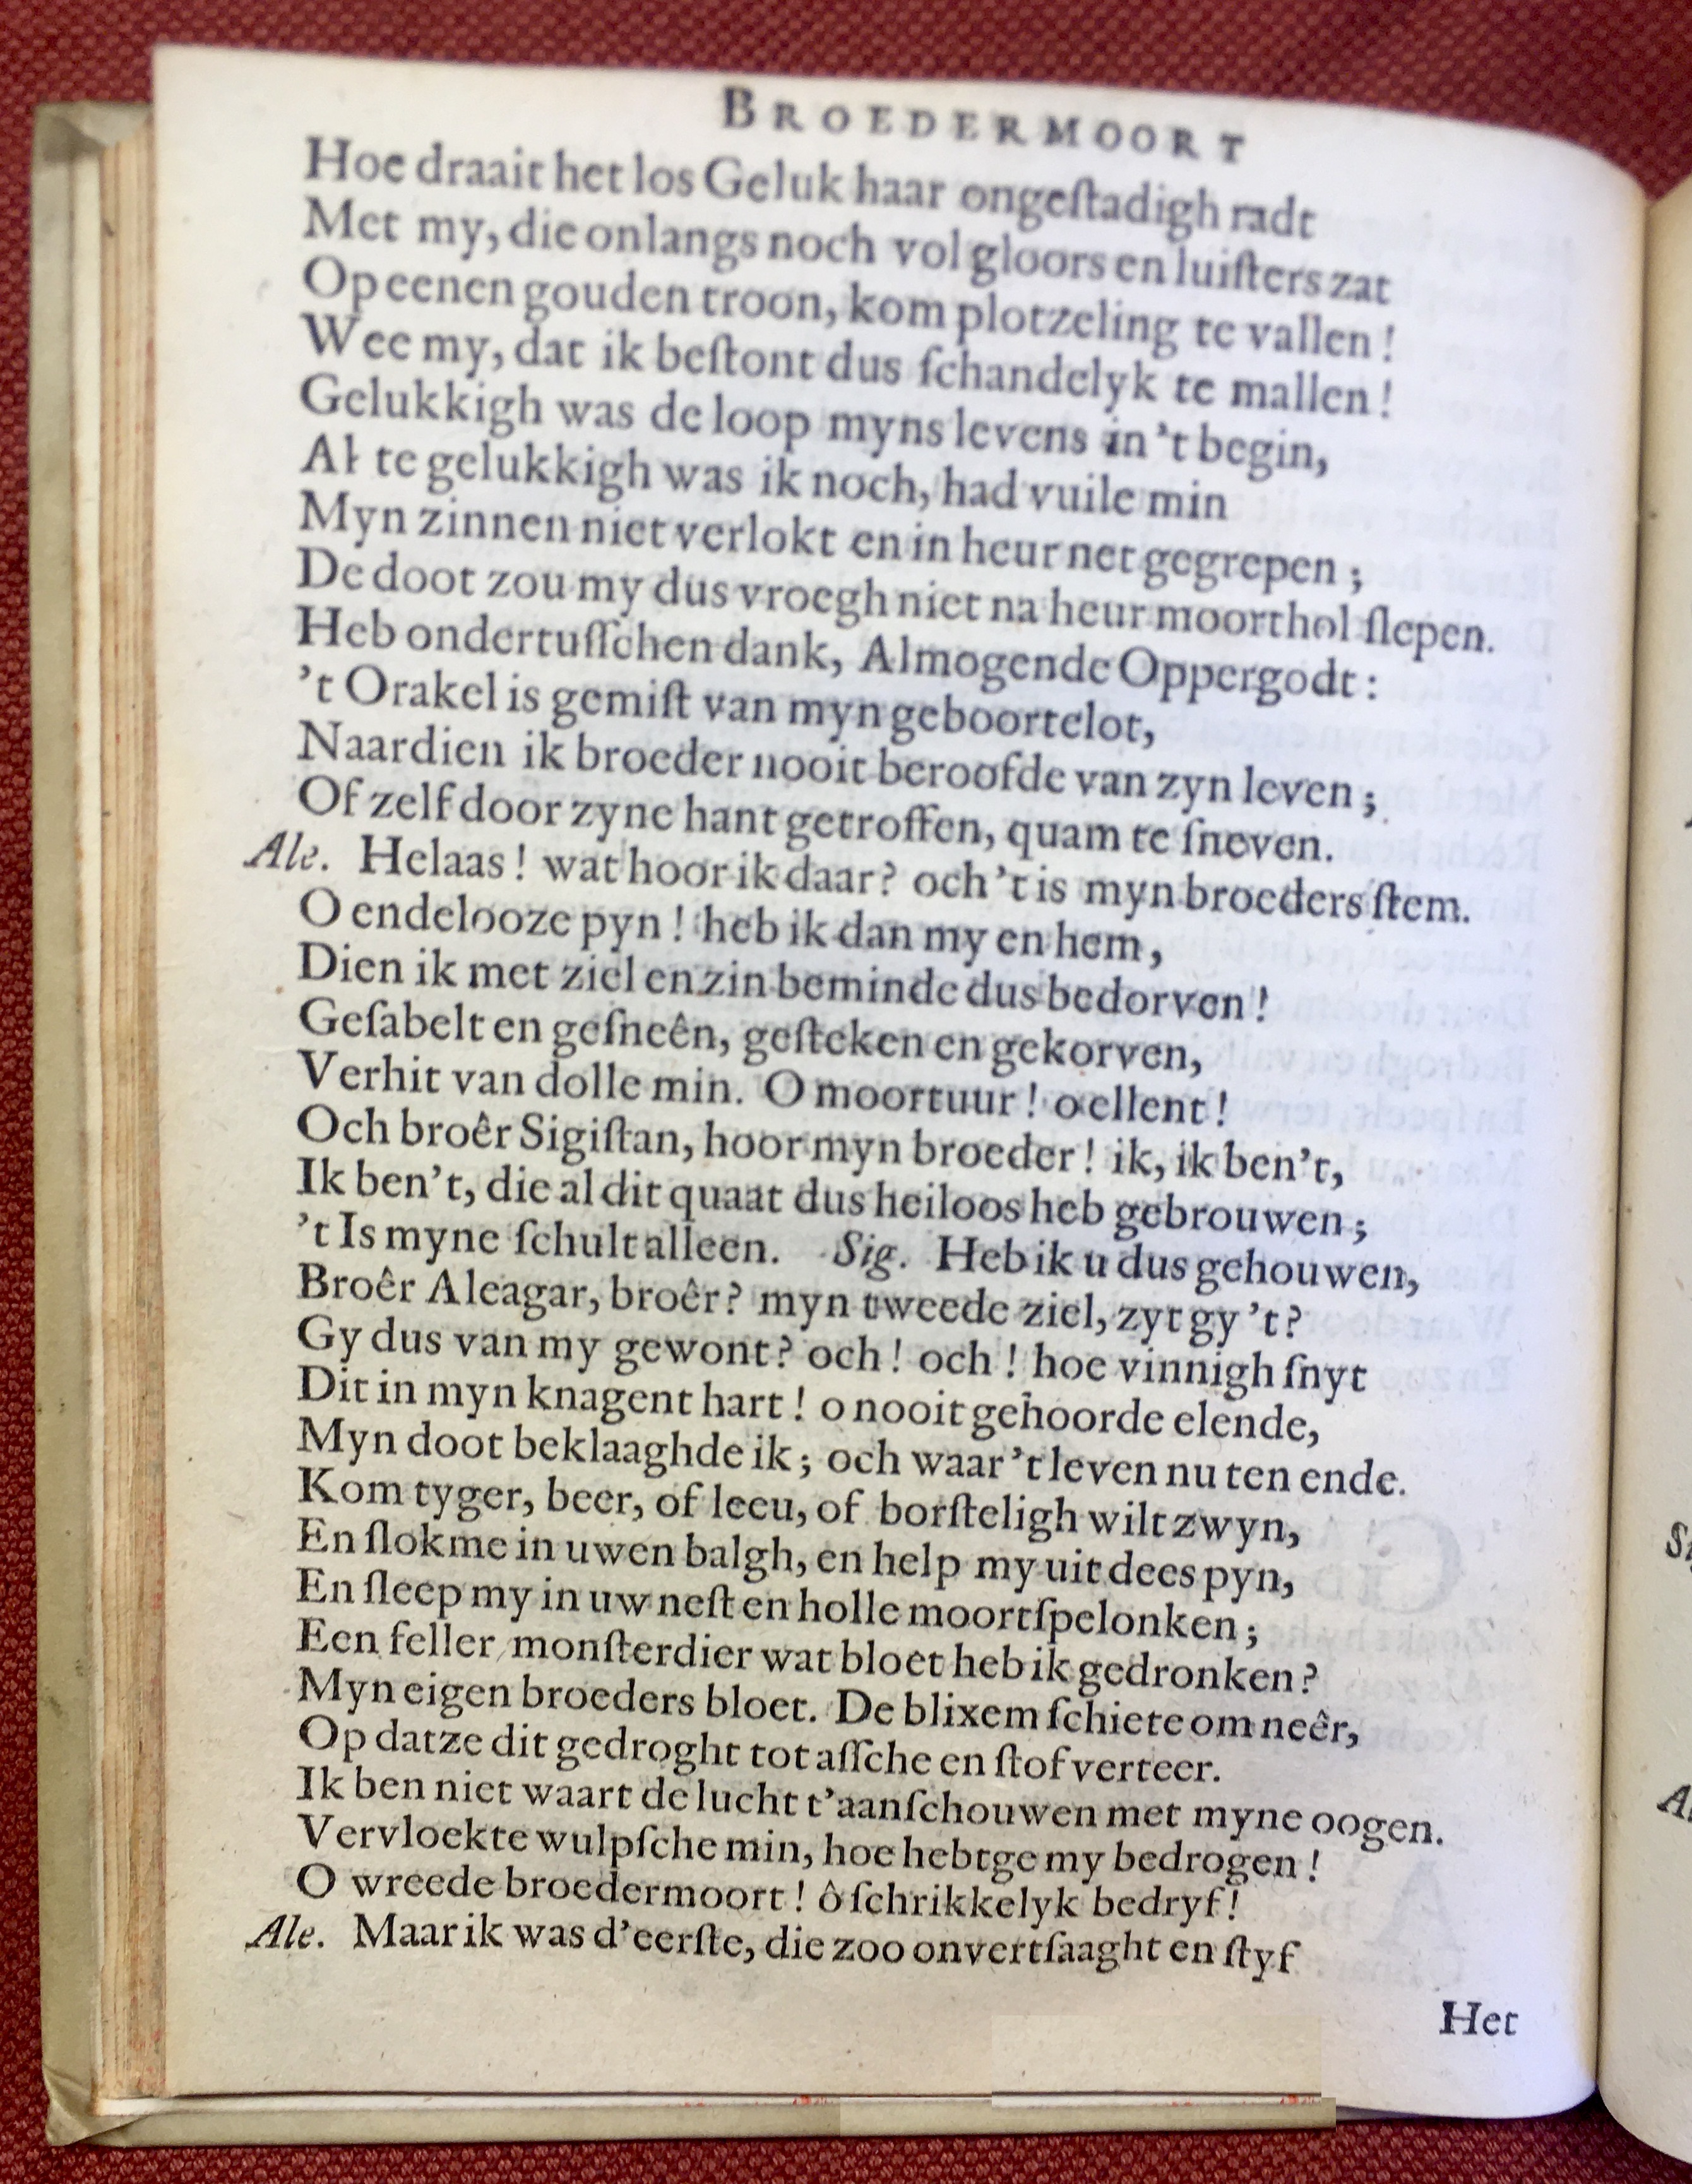 BROEDERMOORT
Hoe draait het los Geluk haar ongeſtadigh radt
Met my, die onlangs noch vol gloors en luiſters zat
Op eenen gouden troon, kom plotzeling te vallen!
Wee my, dat ik beſtont dus ſchandelyk te mallen!
Gelukkigh was de loop myns levens in 't begin,
Al te gelukkigh was ik noch, had vuile min
Myn zinnen niet verlokt en in heur net gegrepen;
De doot zou my dus vroegh niet na heur moorthol ſlepen.
Heb ondertuſſchen dank, Almogende Oppergodt:
't Orakel is gemiſt van myn geboortelot,
Naardien ik broeder nooit beroofde van zyn leven;
Of zelf door zyne hant getroffen, quam te ſneven.
Ale. Helaas! wat hoor ik daar? och 't is myn broeders ſtem.
O endelooze pyn! heb ik dan my en hem,
Dien ik met ziel en zin beminde dus bedorven!
Geſabelt en geſneên, geſteken en gekorven,
Verhit van dolle min. O moortuur! o ellent!
Och broêr Sigiſtan, hoor myn broeder! ik, ik ben't,
Ik ben't, die al dit quaat dus heiloos heb gebrouwen;
't Is myne ſchult alleen. Sig. Heb ik u dus gehouwen,
Broêr Aleagar, broêr? myn tweede ziel, zyt gy 't?
Gy dus van my gewont? och! och! hoe vinnigh ſnyt
Dit in myn knagent hart! o nooit gehoorde elende,
Myn doot beklaaghde ik; och waar 't leven nu ten ende.
Kom tyger, beer, of leeu, of borſteligh wilt zwyn,
En ſlokme in uwen balgh, en help my uit dees pyn,
En ſleep my in uw neſt en holle moortſpelonken;
Een feller monſterdier wat bloet heb ik gedronken?
Myn eigen broeders bloet. De blixem ſchiete om neêr,
Op datze dit gedroght tot aſſche en ſtof verteer.
Ik ben niet waart de lucht t'aanſchouwen met myne oogen.
Vervloekte wulpſche min, hoe hebtge my bedrogen!
O wreede broedermoort! ô ſchrikkelyk bedryf!
Ale. Maar ik was d'eerſte, die zoo onvertſaaght en ſtyf
Het